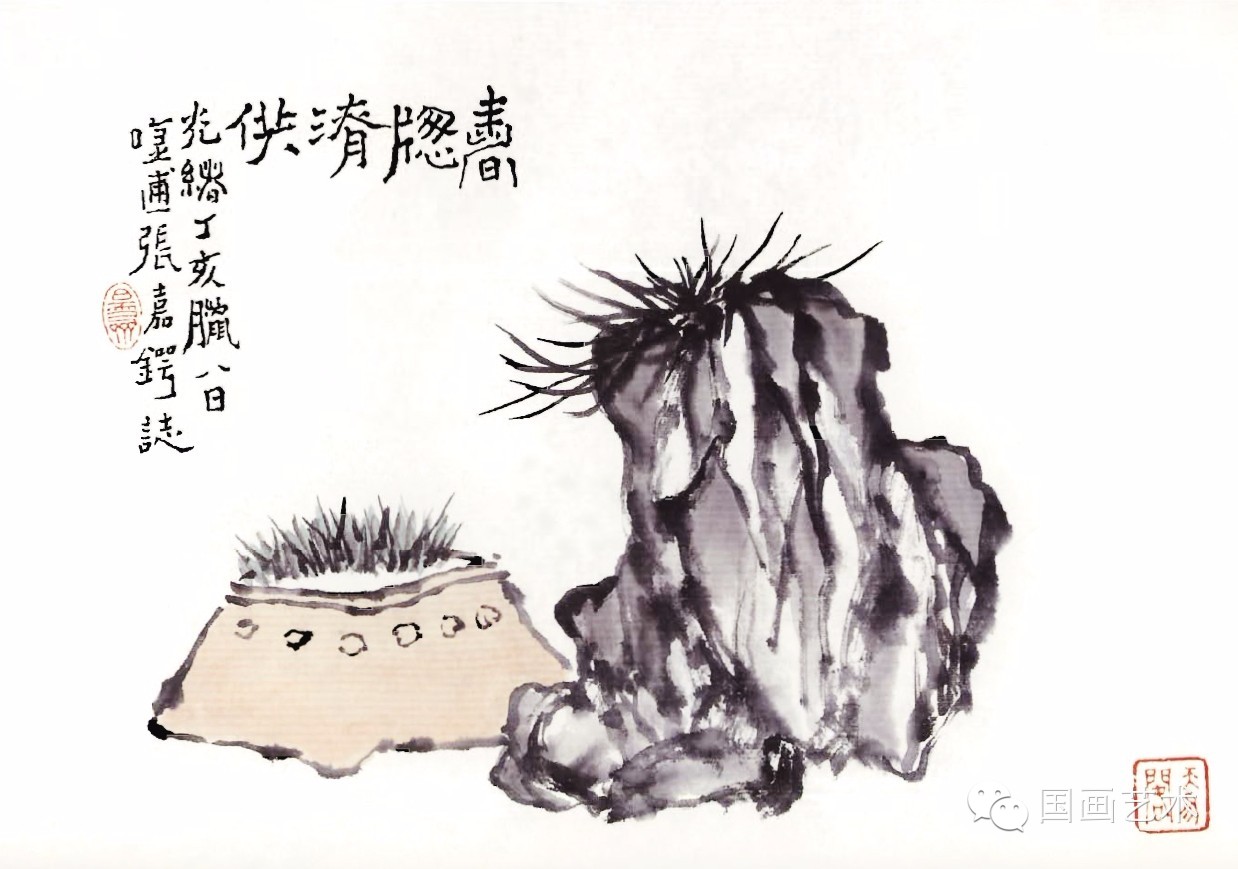 書牕清供
光緒丁亥臘八日
甫張嘉鍔誌
国画艺术